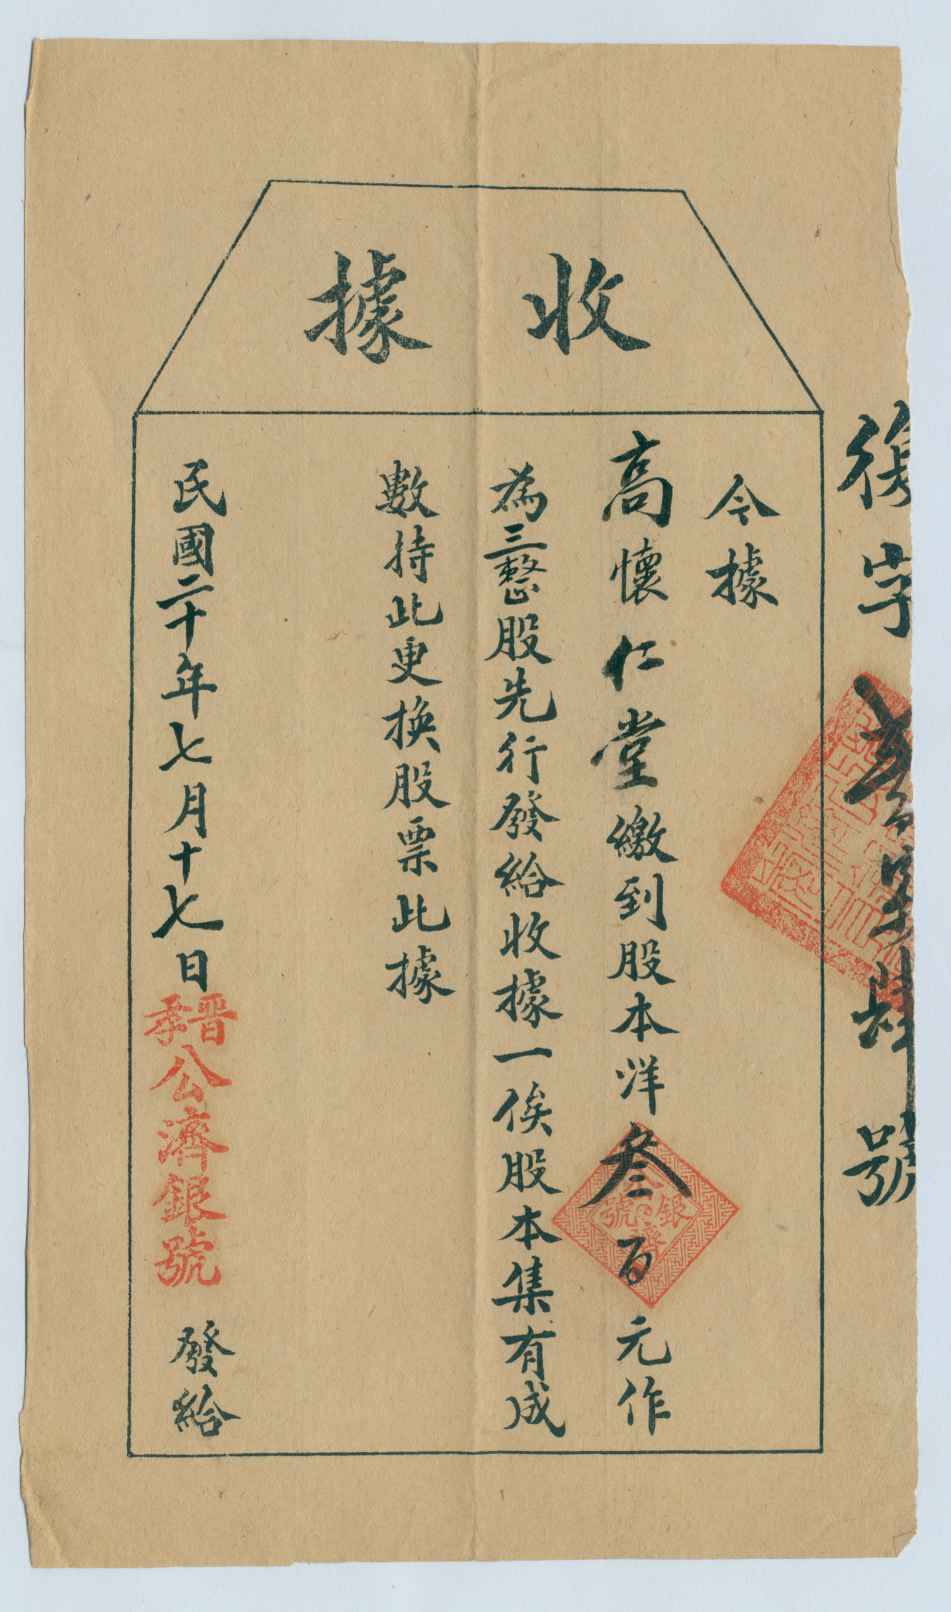 收據
復字壹第肆號
今據
高懷仁堂繳到股本洋叁百元作
為三整股先行發給收據一俟股本集有成
數持此更換股票此據
民國二十年七月十七日晉孝公濟銀號發給